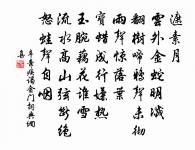 遮素月
雲外金蛇明滅
翻樹啼鴉聲未徹
雨聲驚落葉
寶蠟成行嫌熱
玉腕藕花誰雪
流水高山弦斷絕
怒蛙聲自咽
辛棄疾謁金門詞